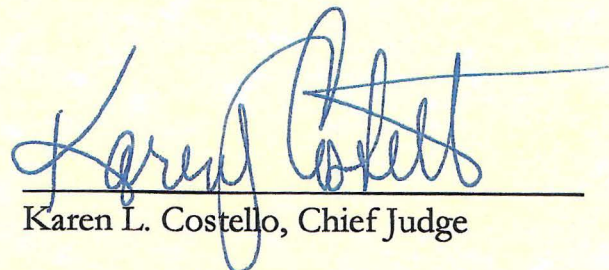 Karen Costello
Karen L. Costello, Chief Judge